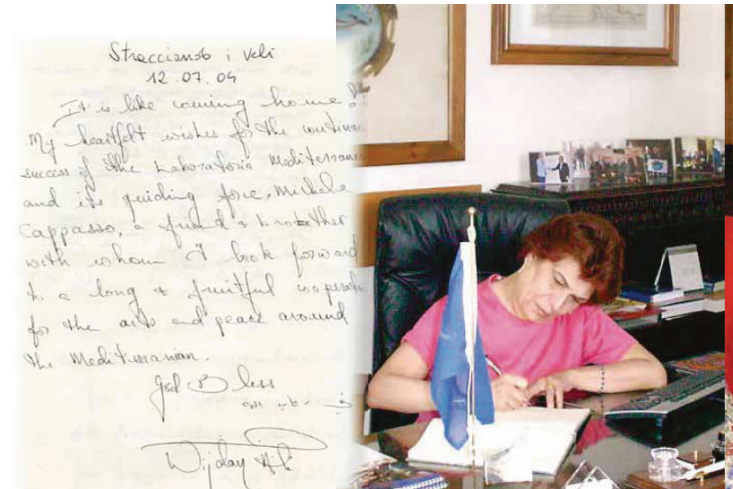 Stracciando i veli
12.07.04
It is like coming home!
My heartfelt wishes for the continued
success of the Laboratorio Mediterraneo
and its guiding force, Michele
Cappasso, a friend & brother
with whom I look forward
to a long & fruitful cooperation
for the arts and peace around
the Mediterranian.
God Bless
Wijdan Ali